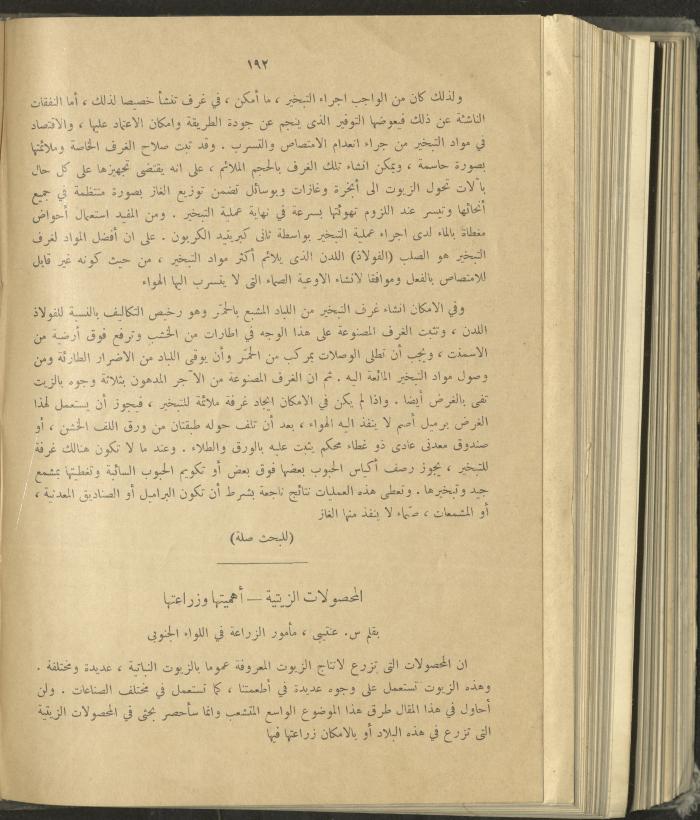 ١٩٢
ولذلك كان من الواجب اجراء التبخير ، ما أمكن ، في غرف تنشأ خصيصا لذلك ، أما النفقات
الناشئة عن ذلك فيعوضها التوفير الذى ينجم عن جودة الطريقة وامكان الاعتماد عليها ، والاقتصاد
في مواد التبخير من جراء انعدام الامتصاص والتسرب . وقد ثبت صلاح الغرف الخاصة وملائمتها
بصورة حاسمة ، ويمكن انشاء تلك الغرف بالحجم الملائم ، على انه يقتضى تجهيزها على كل حال
بآلات تحول الزيوت الى أبخرة وغازات وبوسائل تضمن توزيع الغاز بصورة منتظمة في جميع
أنحائها وتيسر عند اللزوم تهوئتها بسرعة في نهاية عملية التبخير . ومن المفيد استعمال أحواض
مغطاة بالماء لدى اجراء عملية التبخير بواسطة ثانى كبريتيد الكربون . على ان أفضل المواد لغرف
التبخير هو الصلب (الفولاذ) اللدن الذى يلائم أكثر مواد التبخير ، من حيث كونه غير قابل
للامتصاص بالفعل وموافقا لانشاء الاوعية الصماء التى لا يتسرب اليها الهواء
وفي الامكان انشاء غرف التبخير من اللباد المشبع بالحمّر وهو رخيص التكاليف بالنسبة للفولاذ
اللدن ، وتثبت الغرف المصنوعة على هذا الوجه في اطارات من الخشب وترفع فوق أرضية من
الاسمنت ، ويجب أن تطلى الوصلات بمركب من الحمّر وأن يوقى اللباد من الاضرار الطارئة ومن
وصول مواد التبخير المائعة اليه . ثم ان الغرف المصنوعة من الآجر المدهون بثلاثة وجوه بالزيت
تفى بالغرض أيضا . واذا لم يكن في الامكان ايجاد غرفة ملائمة للتبخير ، فيجوز أن يستعمل لهذا
الغرض برميل أصم لا ينفذ اليه الهواء ، بعد أن تلف حوله طبقتان من ورق اللف الخشن ، أو
صندوق معدنى عادى ذو غطاء محكم يثبت عليه بالورق والطلاء . وعند ما لا تكون هنالك غرفة
للتبخير ، يجوز رصف أكياس الحبوب بعضها فوق بعض أو تكويم الحبوب السائبة وتغطيتها بمشمع
جيد وتبخيرها . وتعطى هذه العمليات نتائج ناجعة بشرط أن تكون البراميل أو الصناديق المعدنية ،
أو المشمعات ، صماء لا ينفذ منها الغاز
(للبحث صلة)
المحصولات الزيتية — أهميتها وزراعتها
بقلم س. عتيبى ، مأمور الزراعة في اللواء الجنوبى
ان المحصولات التى تزرع لانتاج الزيوت المعروفة عموما بالزيوت النباتية ، عديدة ومختلفة .
وهذه الزيوت تستعمل على وجوه عديدة في أطعمتنا ، كما تستعمل في مختلف الصناعات . ولن
أحاول في هذا المقال طرق هذا الموضوع الواسع المتشعب وانما سأحصر بحثى في المحصولات الزيتية
التى تزرع في هذه البلاد أو بالامكان زراعتها فيها